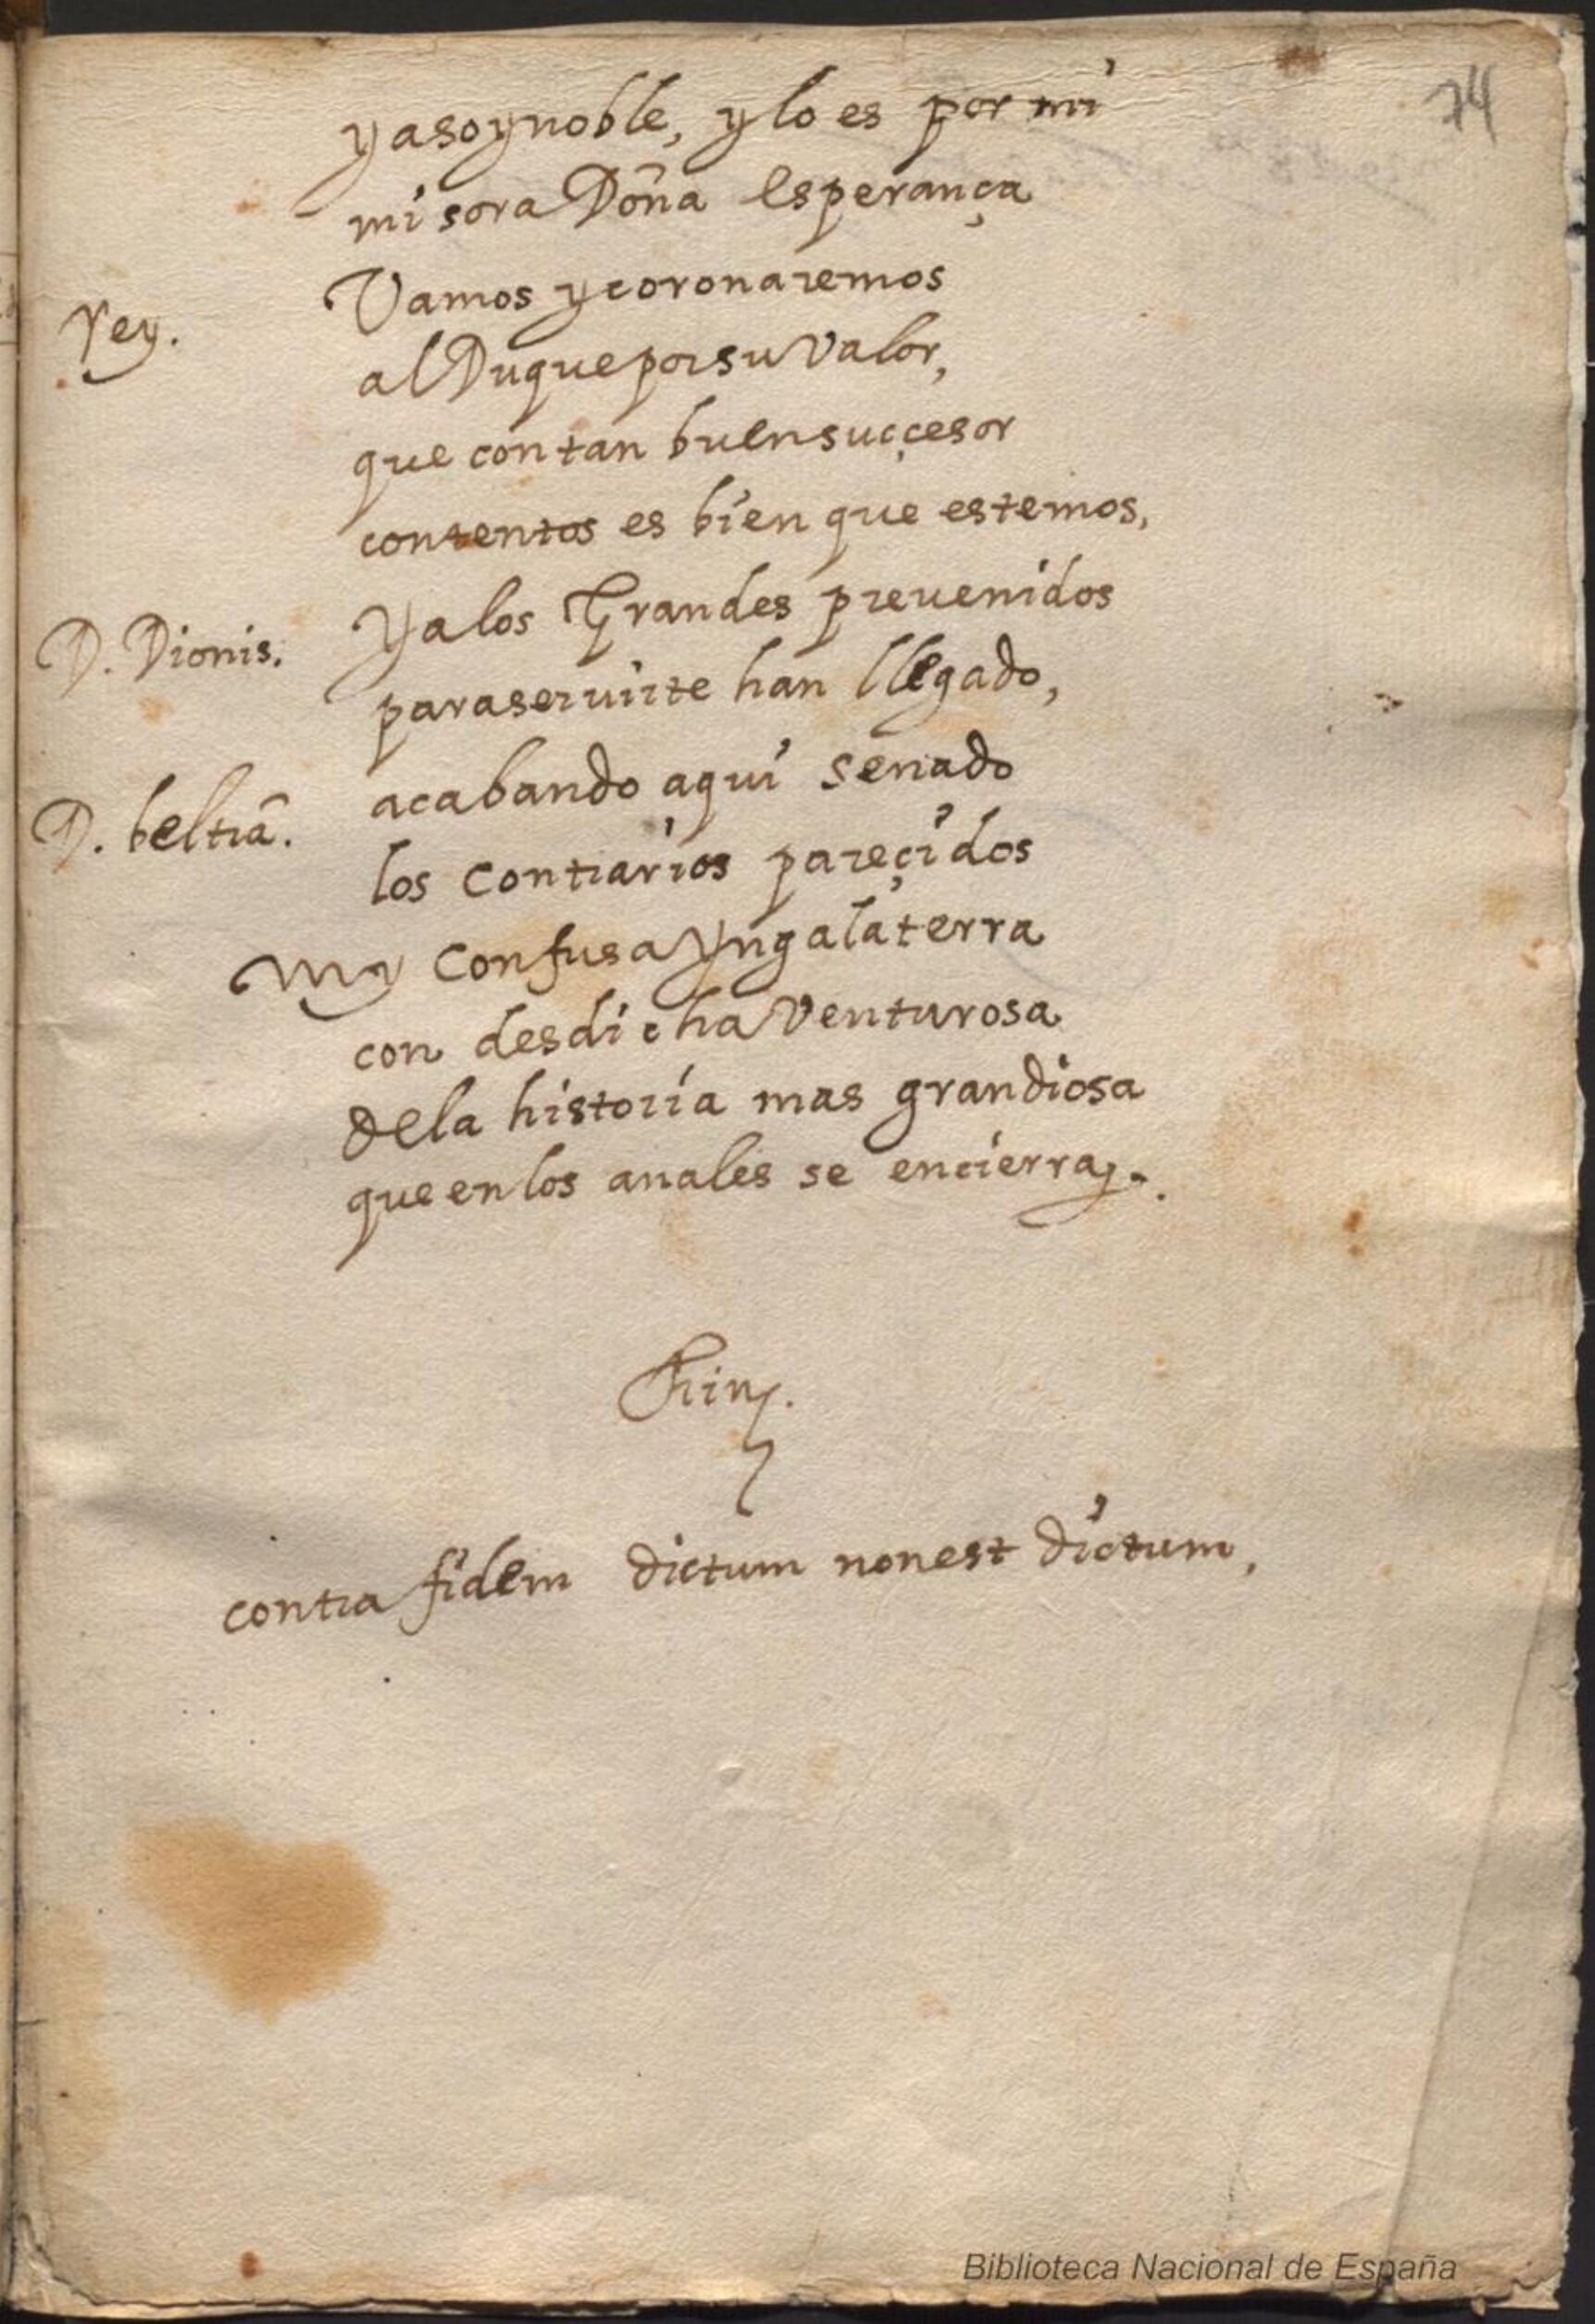 74
ya soy noble, y lo es por mi
mi sora Doña Esperança
Rey. Vamos y coronaremos
al Duque por su valor,
que con tan buen sucçesor
contentos es bien que estemos,
D. Dionis. Ya los Grandes preuenidos
para seruirte han llegado,
D. beltrã. acabando aqui senado
los contrarios pareçidos
y confusa Yngalaterra
con desdicha venturosa
de la historia mas grandiosa
que en los anales se encierra.
Fin.
contra fidem dictum non est dictum,
Biblioteca Nacional de España